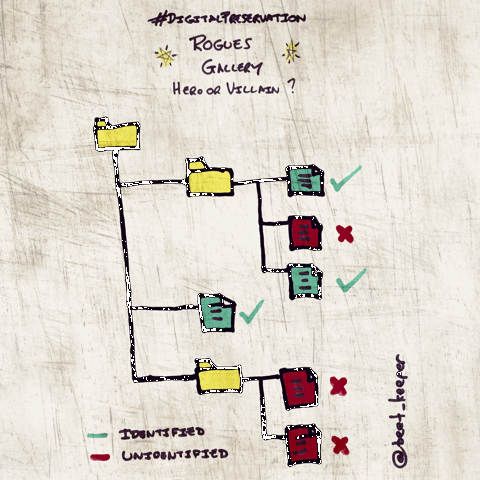 #DIGITALPRESERVATION
ROGUES
GALLERY
HERO OR VILLAIN ?
IDENTIFIED
UNIDENTIFIED
@beet_keeper